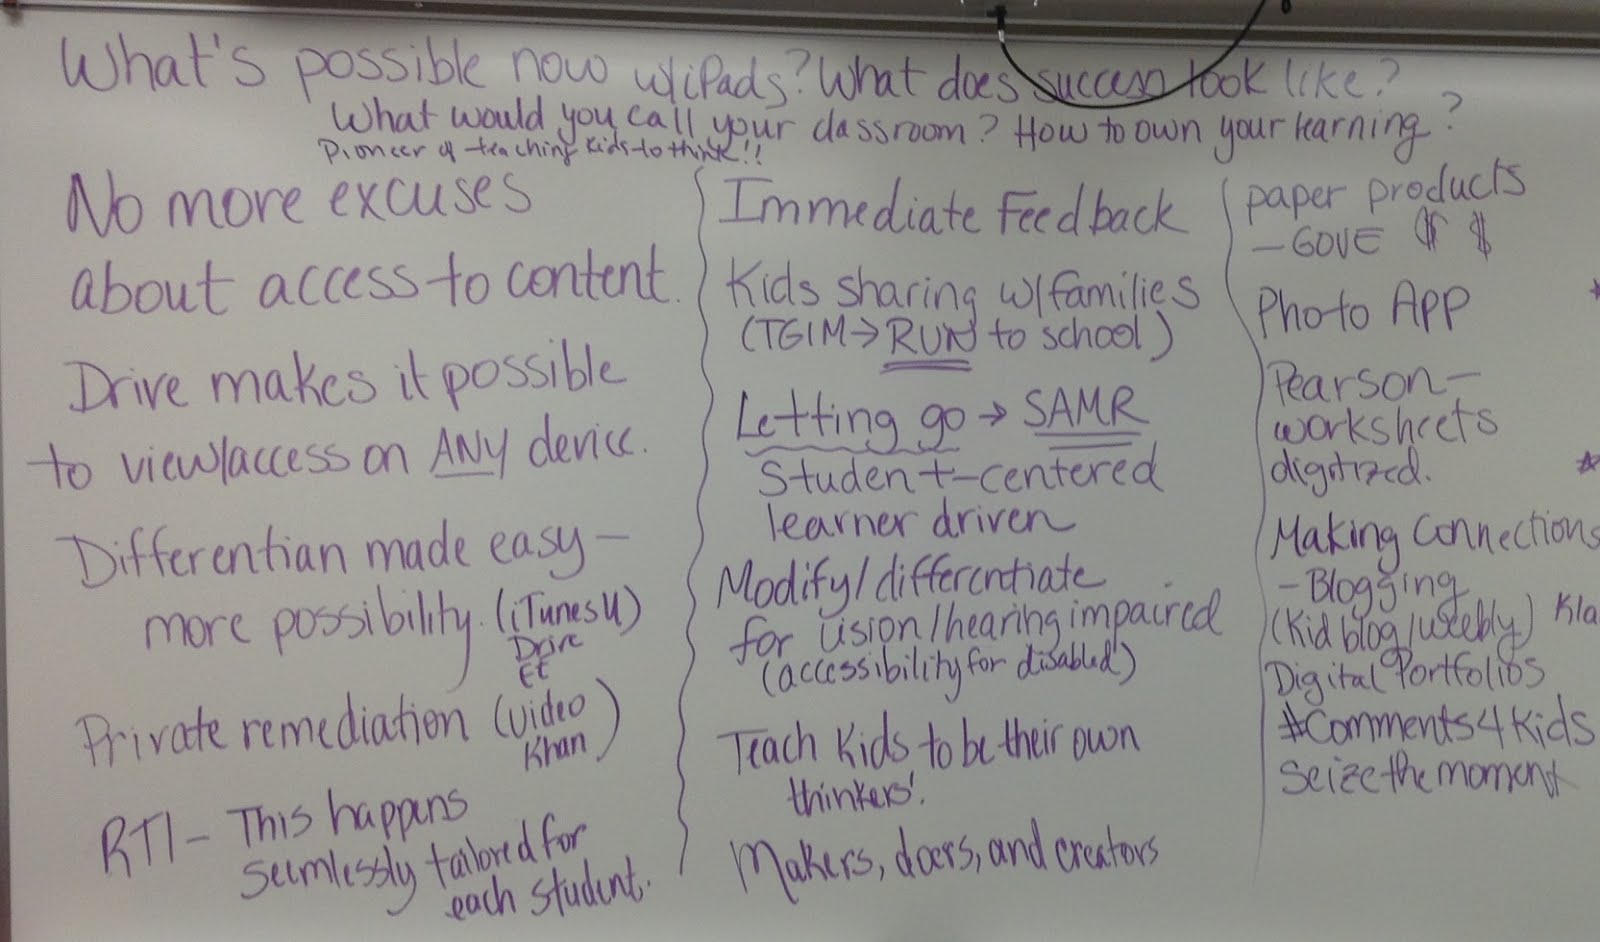 What's possible now w/iPads? What does success look like?
What would you call your classroom? How to own your learning?
Pioneer of teaching kids to think!!
No more excuses
about access to content.
Drive makes it possible
to view/access on ANY device.
Differentian made easy—
more possibility. (iTunesU)
Drive
EE
Private remediation (video
Khan)
RTI - This happens
seemlessly tailored for
each student.
Immediate Feedback
Kids sharing w/families
(TGIM→RUN to school)
Letting go → SAMR
Student-centered
learner driven
Modify/differentiate
for vision/hearing impaired
(accessibility for disabled)
Teach Kids to be their own
thinkers!
Makers, doers, and creators
paper products
—GOVE $ $
Photo App
Pearson—
worksheets
digitized.
Making Connections
-Blogging
(Kid blog/weebly) Kla
Digital Portfolios
#Comments4Kids
Seize the moment